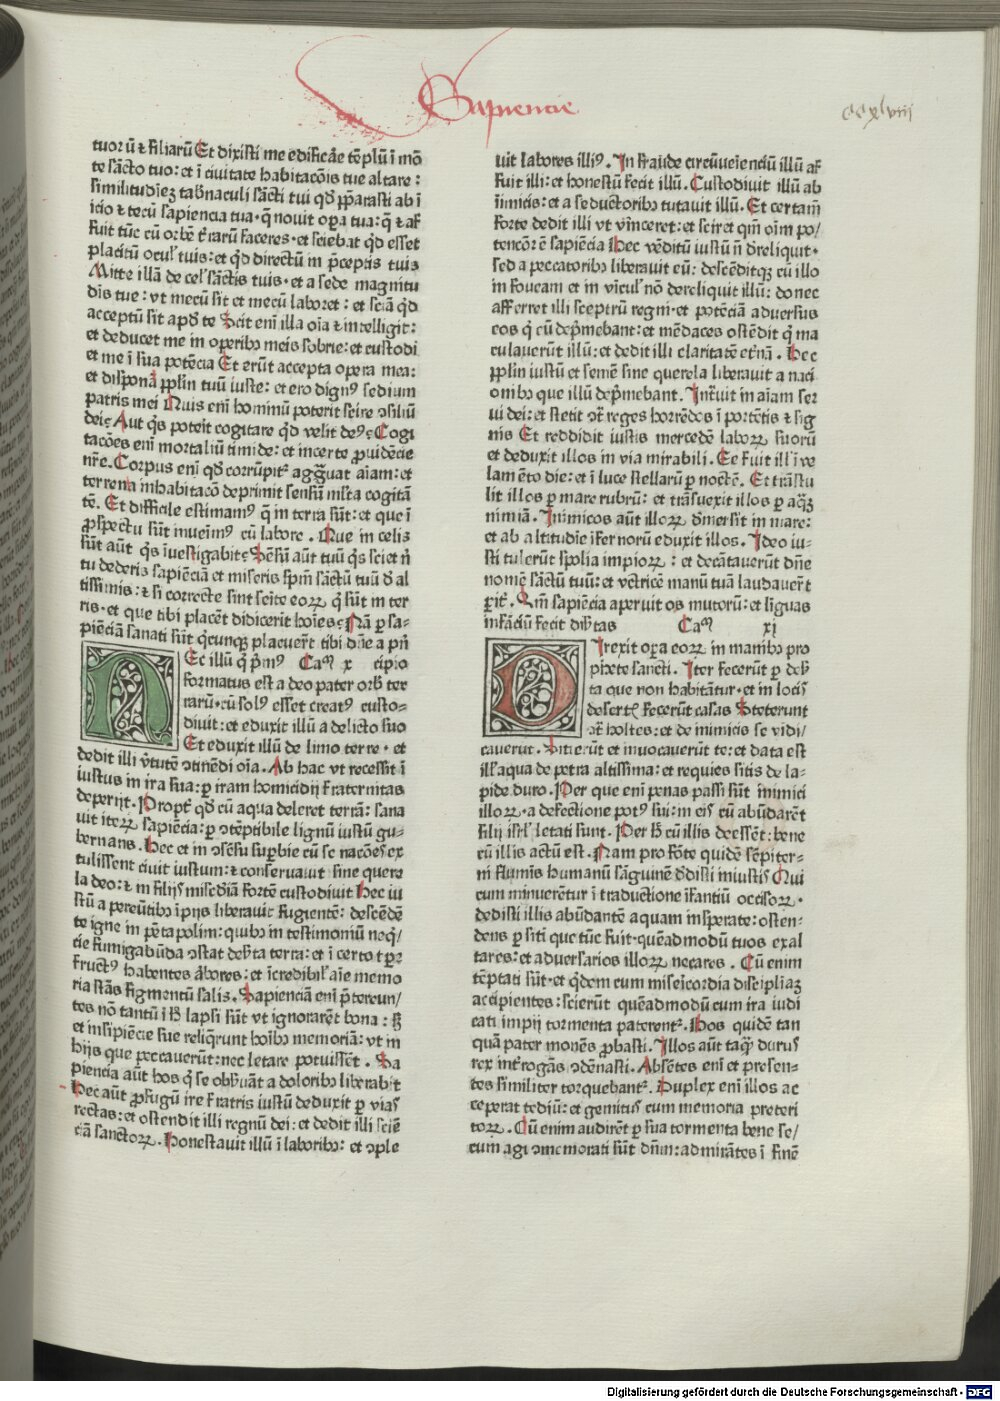 Sapiencie
ccxlviii
tuoꝝ ū ⁊ filiarū Et dixisti me edificāe tēplū ī mō
te sācto tuo: et ī ciuitate habitacōis tue altare:
similitudīeꝫ tab̄naculi sācti tui qd̄ ꝓparasti ab ī
icio ⁊ tecū sapiencia tua· q̄ nouit oꝑa tua: q̄ ⁊ af
fuit tūc cū orbē t̄rarū faceres· et sciebat qd̄ esset
placitū oculꝭ tuis: et qd̄ directū in p̄ceptis tuis
Mitte illā de celꝭ sāctis tuis· et a sede magnitu
dīs tue: vt mecū sit et mecū laboret: et sciā qd̄
acceptū sit apd̄ te Scit enī illa oīa ⁊ intelligit:
et deducet me in operibꝰ meis sobrie: et custodi
et me ī sua potēcia Et erūt accepta opera mea:
et disponā pplm̄ tuū iuste: et ero dignꝰ sedium
patris mei Quis enī hominū poterit scire ↄsiliū
dei Aut qs̄ poteīt cogitare qd̄ velit deꝰ Cogi
tacōes enī mortaliū timide: et incerte ꝓuidēcie
nr̄e. Corpus enī qd̄ corrūpitᷣ aggͣuat aīam: et
terrena inhabitacō deprimit sensū ml̄ta cogitā
tē. Et difficile estimamꝰ q̄ in terra sūt: et que ī
ꝓspectu sūt inueīmꝰ cū labore. Que in celis
sūt aūt qs̄ īuestigabit Sēsū aūt tuū qs̄ sciet nⁱ
tu dederis sapiēciā et miseris spm̄ sāctū tuū d̄ al
tissimis: ⁊ si correcte sint seīte eoꝝ q̄ sūt in ter
ris· et que tibi placēt didicerīt hoīes Nā ꝑ sa-
piēciā sanati sūt q̄cunqꝫ placuert̄ tibi dn̄e a pn̄
Ec illū q̄ p̄mꝰ Caᵐ x cipio
formatus est a deo pater orbꝭ ter
rarū· cū solꝰ esset creatꝰ custo-
diuit: et eduxit illū a delicto suo
Et eduxit illū de limo terre· et
dedit illi v̄tutē ↄtinēdi oīa. Ab hac vt recessit ī
iustus in ira sua: ꝑ iram homicidij fraternitas
deperijt. Proptᷣ qd̄ cū aqua deleret terrā: sana
uit iteꝝ sapiēcia: ꝑ ↄtēptibile lignū iustū gu-
bernans. Hec et in ↄsēsu suꝑbie cū se nacōes ex
tulissent ciuit iustum: ⁊ conseruauit sine quere
la deo: ⁊ in filijs mīsc̄diā fortē custodiuit Hec iu
stū a pereūtibꝰ īpijs liberauit fugientē: descēdē
te igne in pētapolim: quibꝰ in testimoniū neqͥ/
cie fumigabūda ↄstat deb̄ta terra: et ī certo tꝑe
fructꝰ habentes ābores: et īcredibilꝭ aīe memo
ria stās figmentū salis. Sapienciā enī p̄tereun/
tes nō tantū ī h̄ lapsi sūt vt ignorarēt bona: sꝫ
et insipiēcie sue reliq̄runt hoībꝰ memoriā: vt in
hijs que peccauerūt: nec letare potuissēt. Sa
piencia aūt hos q̄ se obẜuāt a dolоribꝰ liberabit
Hec aūt ꝓfugū ire fratris iustū deduxit ꝑ vias
rectas: et ostendit illi regnū dei: et dedit illi sciē
ciā sanctoꝝ. Honestauit illū ī laboribꝰ: et ↄple
uit labores illiꝰ. In fraude circūueīenciū illū af
fuit illi: et honestū fecit illū. Custodiuit illū ab
inimicis: et a seductoribꝰ tutauit illū. Et certam̄
forte dedit illi vt vīnceret: et sciret qm̄ oīm po/
tencōr ē sapiēcia Hec vēditū iustū nō dreliquit·
sed a peccatoribꝰ liberauit cū: descēditqꝫ cū illo
in foueam et in vīculꝭ nō dereliquit illū: donec
afferret illi sceptrū regni· et potēciā aduersus
eos q̄ cū dep̄mebant: et mēdaces ostēdit q̄ ma
culauerūt illū: et dedit illi claritatē et̄nā. Hec
pplm̄ iustū et semē sine querela liberauit a naci
onibꝰ que illū dep̄mebant. Intͣuit in aīam ser
ui dei: et stetit ↄtͣ reges horrēdos ī portētis ⁊ sig
nis Et reddidit iustis mercedē laboꝝ suorū
et deduxit illos in via mirabili. Ee fuit illꝭ ī ve
lamēto die: et ī luce stellarū ꝑ noctē. Et trāstu
lit illos ꝑ mare rubrū: et trāsuexit illos ꝑ aqͣꝫ
nimiā. Inimicos aūt illoꝝ dīmersit in mare:
et ab altitudīe īfernorū eduxit illos. Ideo iu-
sti tulerūt spolia impioꝝ: et decātauerūt dn̄e
nomē sāctū tuū: et vc̄tricē manū tuā laudauer̄t
ꝑit̄. Qm̄ sapiēcia aperuit os mutorū: et līguas
infāciū fecit dib̄tas Caᵐ xi
Irexit oꝑa eoꝝ in manibꝰ pro
phete sancti. Iter fecerūt ꝑ deẜ
ta que non habitātur· et in locis
desertꝭ fecerūt casas Steterunt
ↄtͣ hostes: et de inimicis se vidi
cauerūt. Sitierūt et inuocauerūt te: et data est
illꝭ aqua de petra altissima: et requies sitis de la-
pide duro. Per que enī penas passi sūt inimici
illoꝝ· a defectione potꝰ sui: in eis cū abūdarēt
filij isrl̄ letati sunt. Per h̄ cū illis deessēt: bene
cū illis actū est. Nam pro fōte quidē sēpiter-
ni fluminis humanū sāguinē dedisti iniustis Qui
cum minuerētur ī traductione īfantiū occisoꝝ·
dedisti illis abūdantē aquam insperate: osten-
dens ꝑ sitī que tūc fuit· quēadmodū tuos exal
tares: et aduersarios illoꝝ necares. Cū enim
tēptati sūt· et q̄dem cum misericordia disciplinaꝫ
accipientes: scierūt quēadmodū cum ira iudi
cati impij tormenta paterentᷣ. Hos quidē tan
quā pater monēs ꝓbasti. Illos aūt taqͣ durus
rex int̄rogās ↄdēnasti. Absētes enī et presen-
tes similiter torquebantᷣ. Duplex enī illos ac
ceperat tediū: et gemitus cum memoria preteri
toꝝ. Cū enim audirēt ꝑ sua tormenta bene se/
cum agi ↄmemorati sūt dn̄m: admirātes ī finē
Digitalisierung gefördert durch die Deutsche Forschungsgemeinschaft - DFG